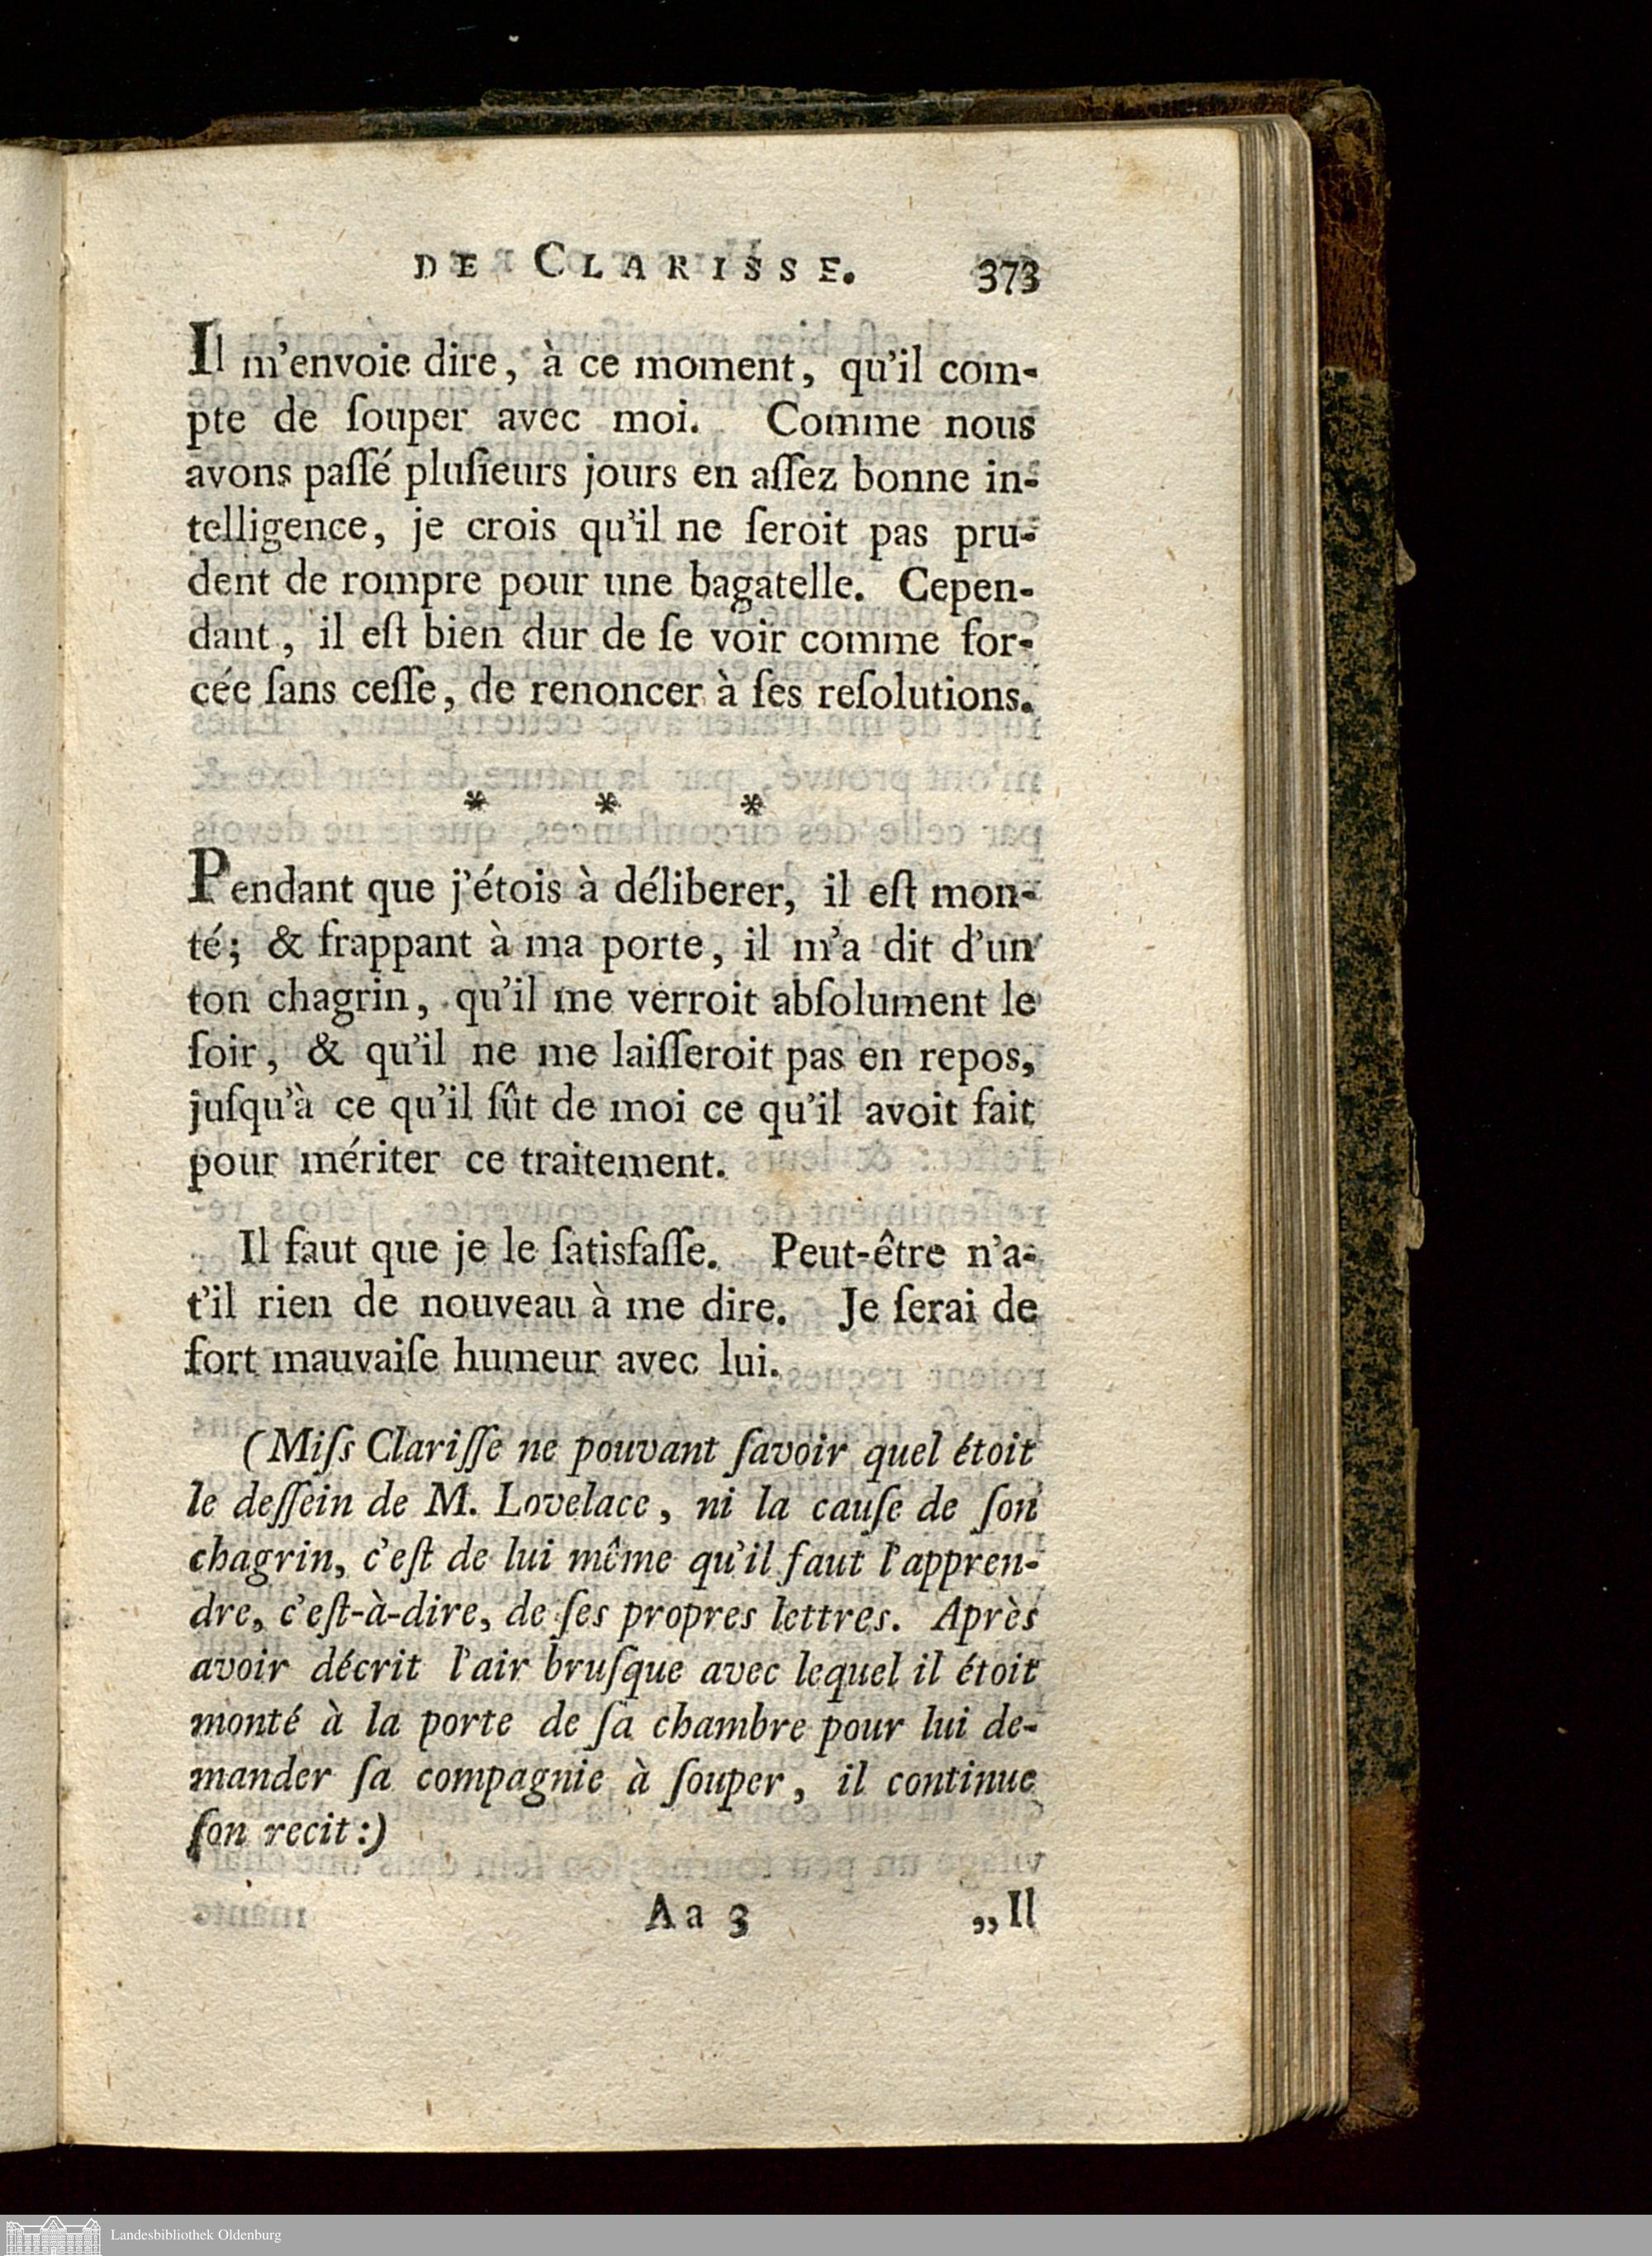 DE CLARISSE. 373
Il m'envoie dire, à ce moment, qu'il com-
pte de ſouper avec moi. Comme nous
avons paſſé pluſieurs jours en aſſez bonne in-
telligence, je crois qu'il ne ſeroit pas pru-
dent de rompre pour une bagatelle. Cepen-
dant, il eſt bien dur de ſe voir comme for-
cée ſans ceſſe, de renoncer à ſes reſolutions.
* * *
Pendant que j'étois à déliberer, il eſt mon-
té; & frappant à ma porte, il m'a dit d'un
ton chagrin, qu'il me verroit abſolument le
ſoir, & qu'il ne me laiſſeroit pas en repos,
juſqu'à ce qu'il ſût de moi ce qu'il avoit fait
pour mériter ce traitement.
Il faut que je le ſatisfaſſe. Peut-être n'a-
t'il rien de nouveau à me dire. Je ſerai de
fort mauvaiſe humeur avec lui.
(Miſs Clariſſe ne pouvant ſavoir quel étoit
le deſſein de M. Lovelace, ni la cauſe de ſon
chagrin, c'eſt de lui même qu'il faut l'appren-
dre, c'eſt-à-dire, de ſes propres lettres. Après
avoir décrit l'air bruſque avec lequel il étoit
monté à la porte de ſa chambre pour lui de-
mander ſa compagnie à ſouper, il continue
ſon recit:)
Aa 3 „Il
Landesbibliothek Oldenburg